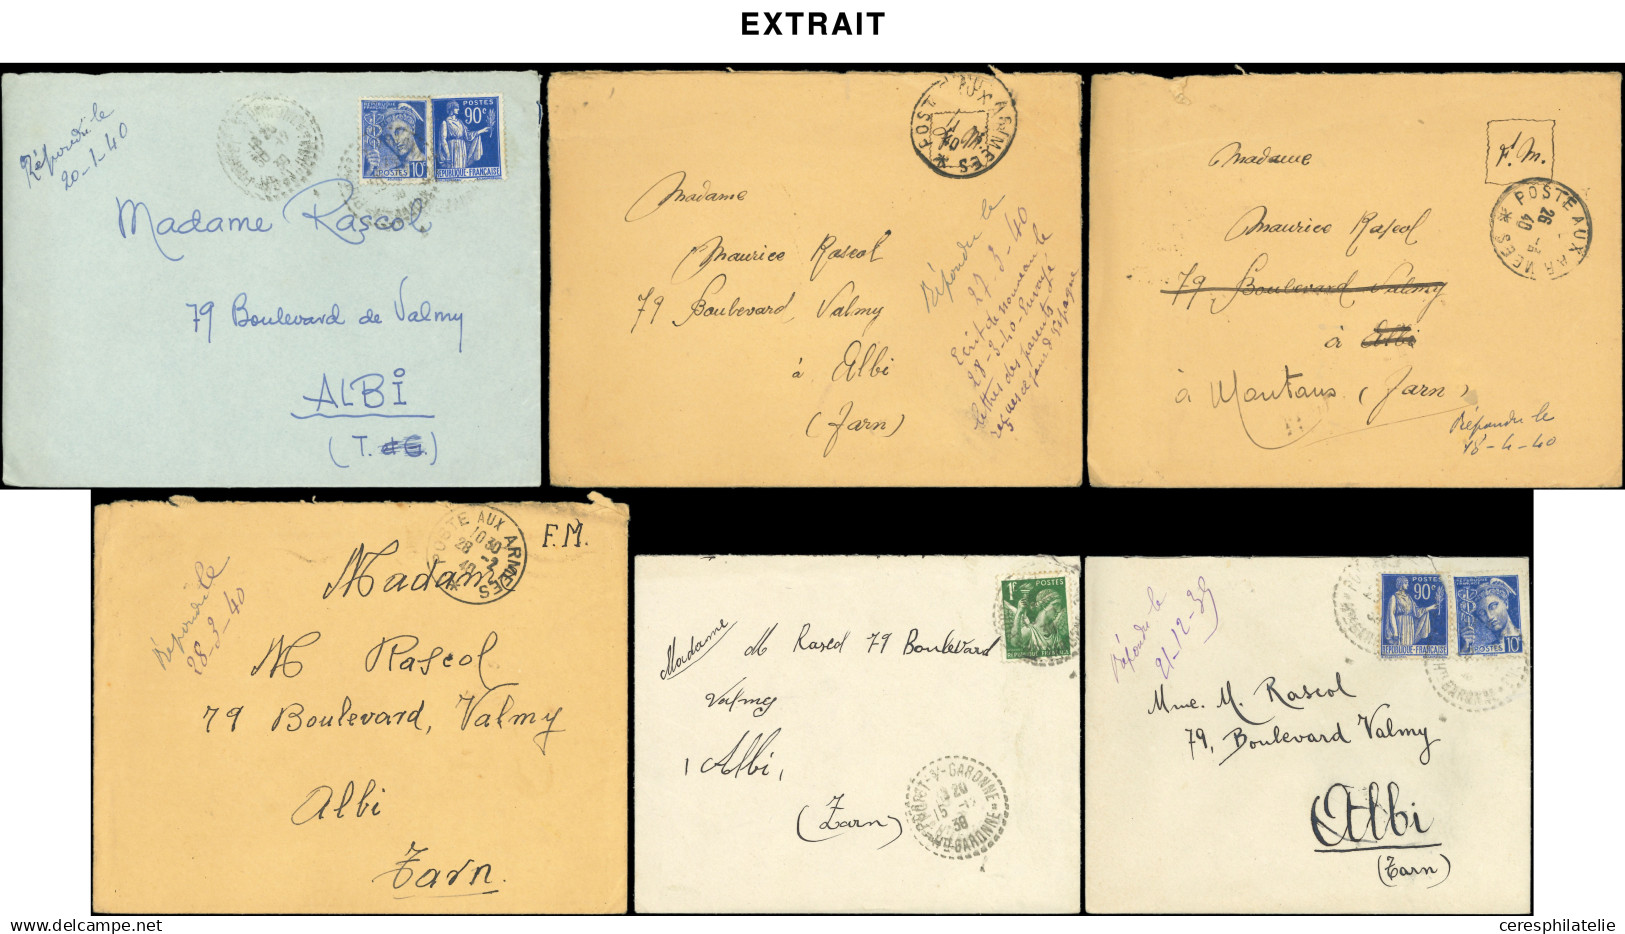 EXTRAIT
Répondu le
20-1-40
REPUBLIQUE
FRANÇAISE
POSTES 10c
POSTES
90c
REPUBLIQUE-FRANÇAISE
Madame Rascol
79 Boulevard de Valmy
ALBI
(T. et G.)
POSTE AUX ARMEES
Madame
Maurice Rascol
79 Boulevard, Valmy
à Albi
(Tarn)
Répondu le
27-3-40
Ecrit de nouveau le
28-3-40 Envoyé
lettres des parents et
reçues de jour d'Espagne
F.M.
POSTE AUX ARMEES
26
40
Madame
Maurice Rascol
79 Boulevard Valmy
à Albi
à Montans (Tarn)
Répondu le
18-4-40
POSTE AUX ARMEES
10 30
28 -2
40
F.M.
Répondu le
28-3-40
Madame
M Rascol
79 Boulevard, Valmy
Albi
Tarn.
1F POSTES
REPUBLIQUE FRANÇAISE
Madame
M Rascol 79 Boulevard
Valmy
Albi,
(Tarn)
GARONNE
20
15
39
Hte GARONNE
Répondu le
21-12-39
90c
POSTES
REPUBLIQUE-FRANÇAISE
REPUBLIQUE
FRANÇAISE
POSTES 10c
Hte GARONNE
Mme. M. Rascol
79, Boulevard Valmy
Albi
(Tarn)
www.delcampe.net
ceresphilatelie